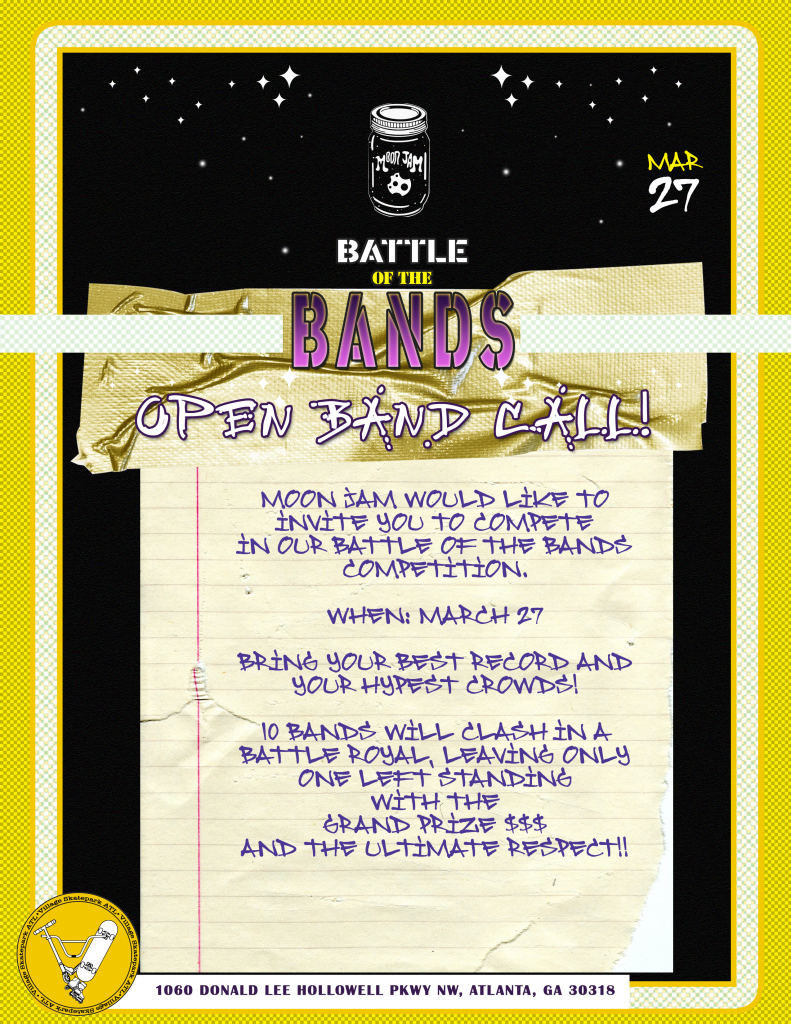 MOON JAM
MAR
27
BATTLE
OF THE
BANDS
OPEN BAND CALL!
MOON JAM WOULD LIKE TO
INVITE YOU TO COMPETE
IN OUR BATTLE OF THE BANDS
COMPETITION.
WHEN: MARCH 27
BRING YOUR BEST RECORD AND
YOUR HYPEST CROWDS!
10 BANDS WILL CLASH IN A
BATTLE ROYAL, LEAVING ONLY
ONE LEFT STANDING
WITH THE
GRAND PRIZE $$$
AND THE ULTIMATE RESPECT!!
Village Skatepark ATL • Village Skatepark ATL • Village Skatepark ATL • Village Skatepark ATL •
1060 DONALD LEE HOLLOWELL PKWY NW, ATLANTA, GA 30318